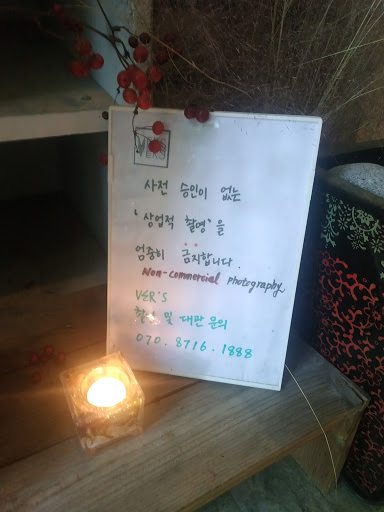 VER'S
사전 승인이 없는
"상업적 촬영"을
엄중히 금지합니다.
Non-commercial photography
VER'S
및 대관 문의
070.8716.1888